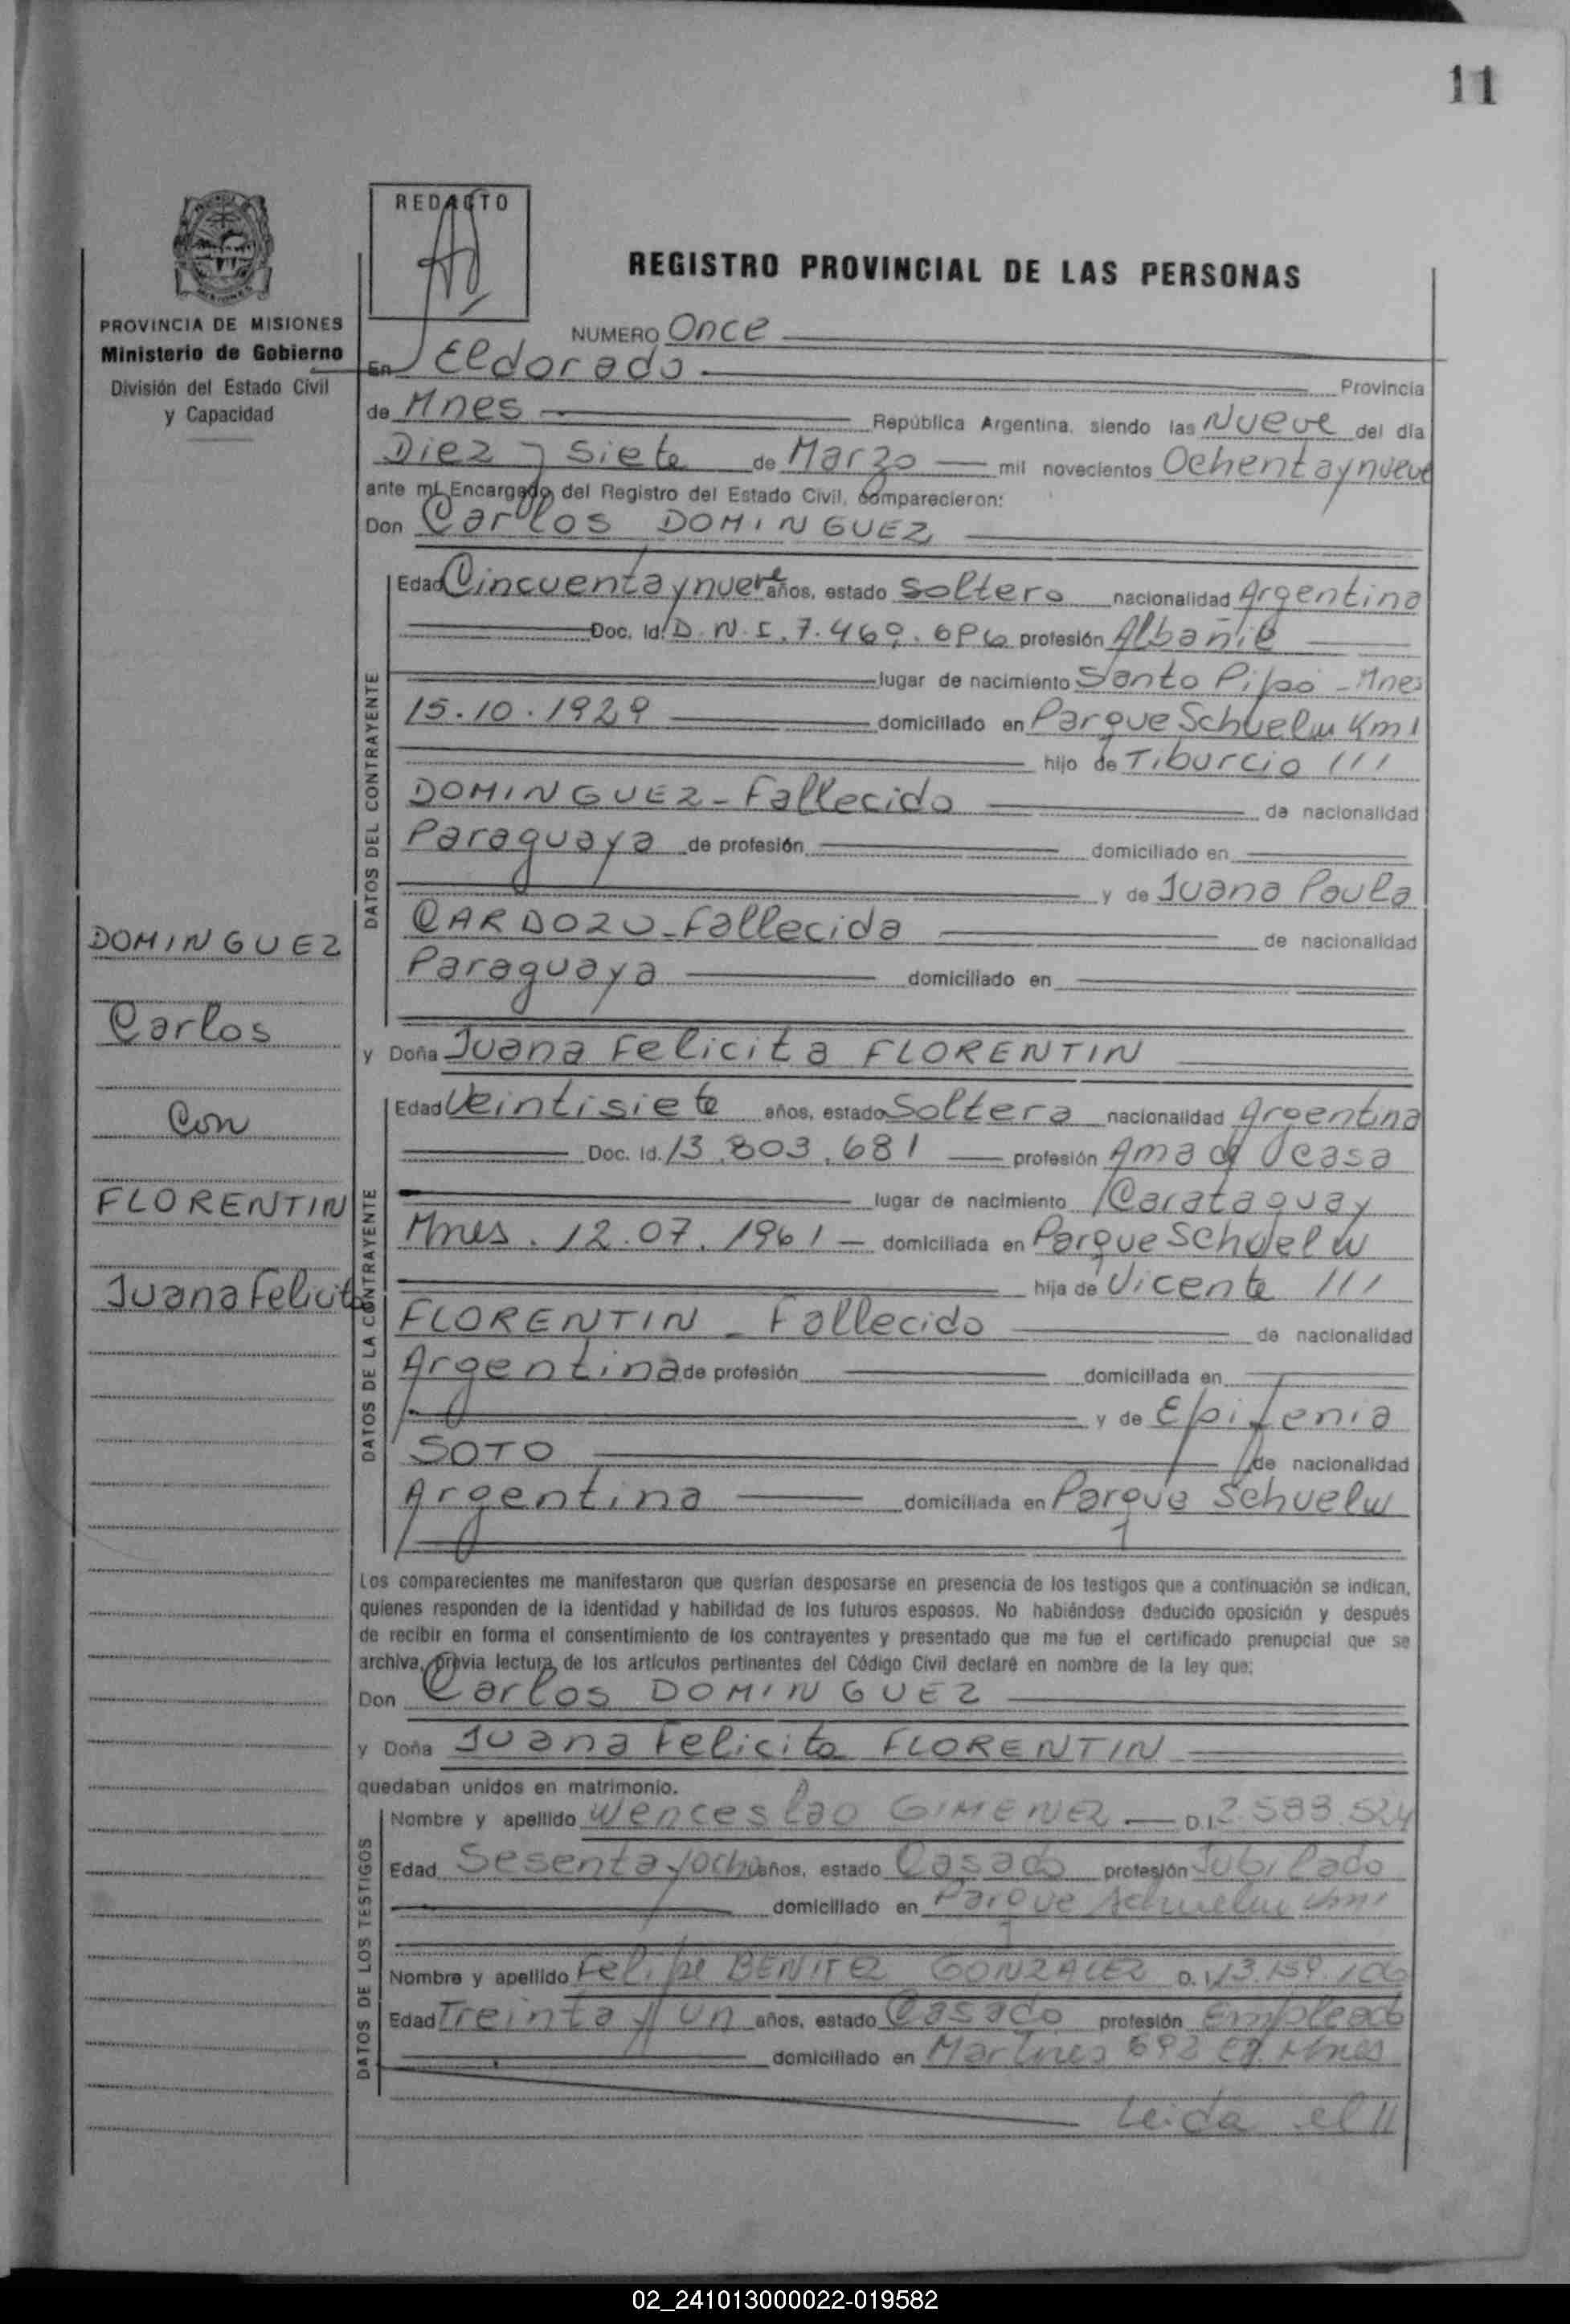 11
REDACTO
REGISTRO PROVINCIAL DE LAS PERSONAS
PROVINCIA DE MISIONES
Ministerio de Gobierno
División del Estado Civil
y Capacidad
NUMERO Once
En Eldorado Provincia
de Mnes República Argentina, siendo las Nueve del día
Diez y Siete de Marzo mil novecientos Ochenta y nueve
ante mí, Encargado del Registro del Estado Civil, comparecieron:
Don Carlos DOMINGUEZ
Edad Cincuenta y nueve años, estado Soltero nacionalidad Argentina
Doc. Id. D.N.I. 7.469.686 profesión Albañil
lugar de nacimiento Santo Pipó - Mnes
15.10.1929 domiciliado en Parque Schuelw Km 1
hijo de Tiburcio ///
DOMINGUEZ - Fallecido de nacionalidad
Paraguaya de profesión domiciliado en
y de Juana Paula
CARDOZO - Fallecida de nacionalidad
Paraguaya domiciliado en
DATOS DEL CONTRAYENTE
DOMINGUEZ
Carlos
Con
FLORENTIN
Juana Felicita
y Doña Juana Felicita FLORENTIN
Edad Veintisiete años, estado Soltera nacionalidad Argentina
Doc. Id. 13.803.681 profesión Ama de casa
lugar de nacimiento Caraguatay
Mnes. 12.07.1961 domiciliada en Parque Schuelw
hija de Vicente ///
FLORENTIN - Fallecido de nacionalidad
Argentina de profesión domiciliada en
y de Epifenia
SOTO de nacionalidad
Argentina domiciliada en Parque Schuelw
DATOS DE LA CONTRAYENTE
Los comparecientes me manifestaron que querían desposarse en presencia de los testigos que a continuación se indican,
quienes responden de la identidad y habilidad de los futuros esposos. No habiéndose deducido oposición y después
de recibir en forma el consentimiento de los contrayentes y presentado que me fue el certificado prenupcial que se
archiva, previa lectura de los artículos pertinentes del Código Civil declaré en nombre de la ley que:
Don Carlos DOMINGUEZ
y Doña Juana Felicita FLORENTIN
quedaban unidos en matrimonio.
Nombre y apellido Wenceslao GIMENEZ D.I. 2.583.524
Edad Sesenta y ocho años, estado Casado profesión Jubilado
domiciliado en Parque Schuelw Km 1
Nombre y apellido Felipe BENITEZ GONZALEZ D.I. 13.159.106
Edad Treinta y un años, estado Casado profesión Empleado
domiciliado en Martires 692 Mnes
DATOS DE LOS TESTIGOS
Leida el //
02_241013000022-019582